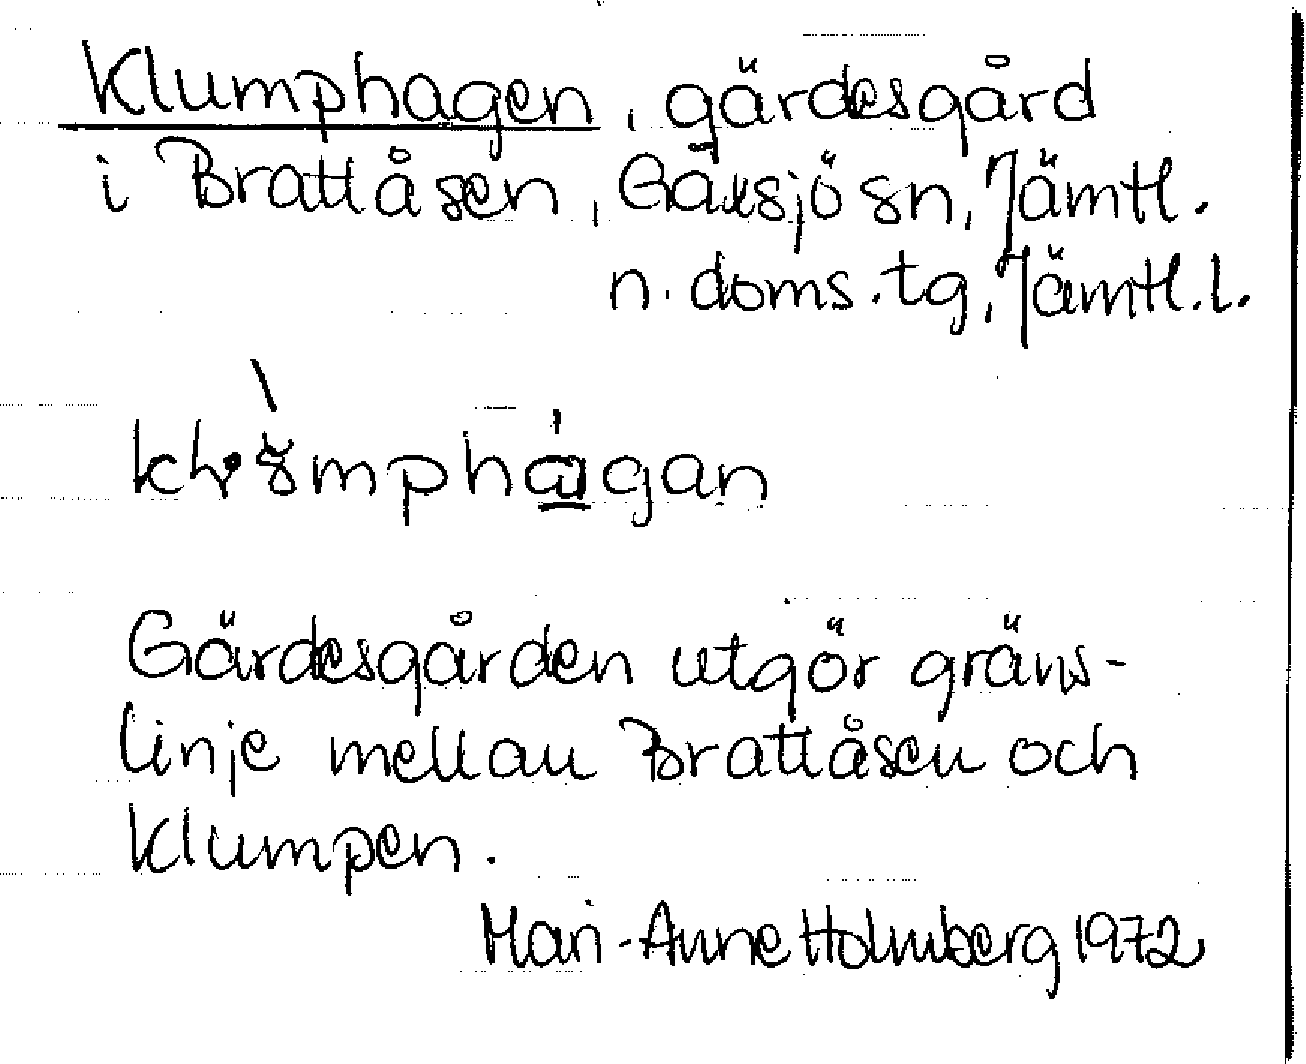 Klumphagen, gärdesgård
i Brattåsen, Gåxsjö sn, Jämtl.
n. doms. tg, Jämtl. l.
Gärdesgården utgör gräns-
linje mellan Brattåsen och
Klumpen.
Mari-Anne Holmberg 1972